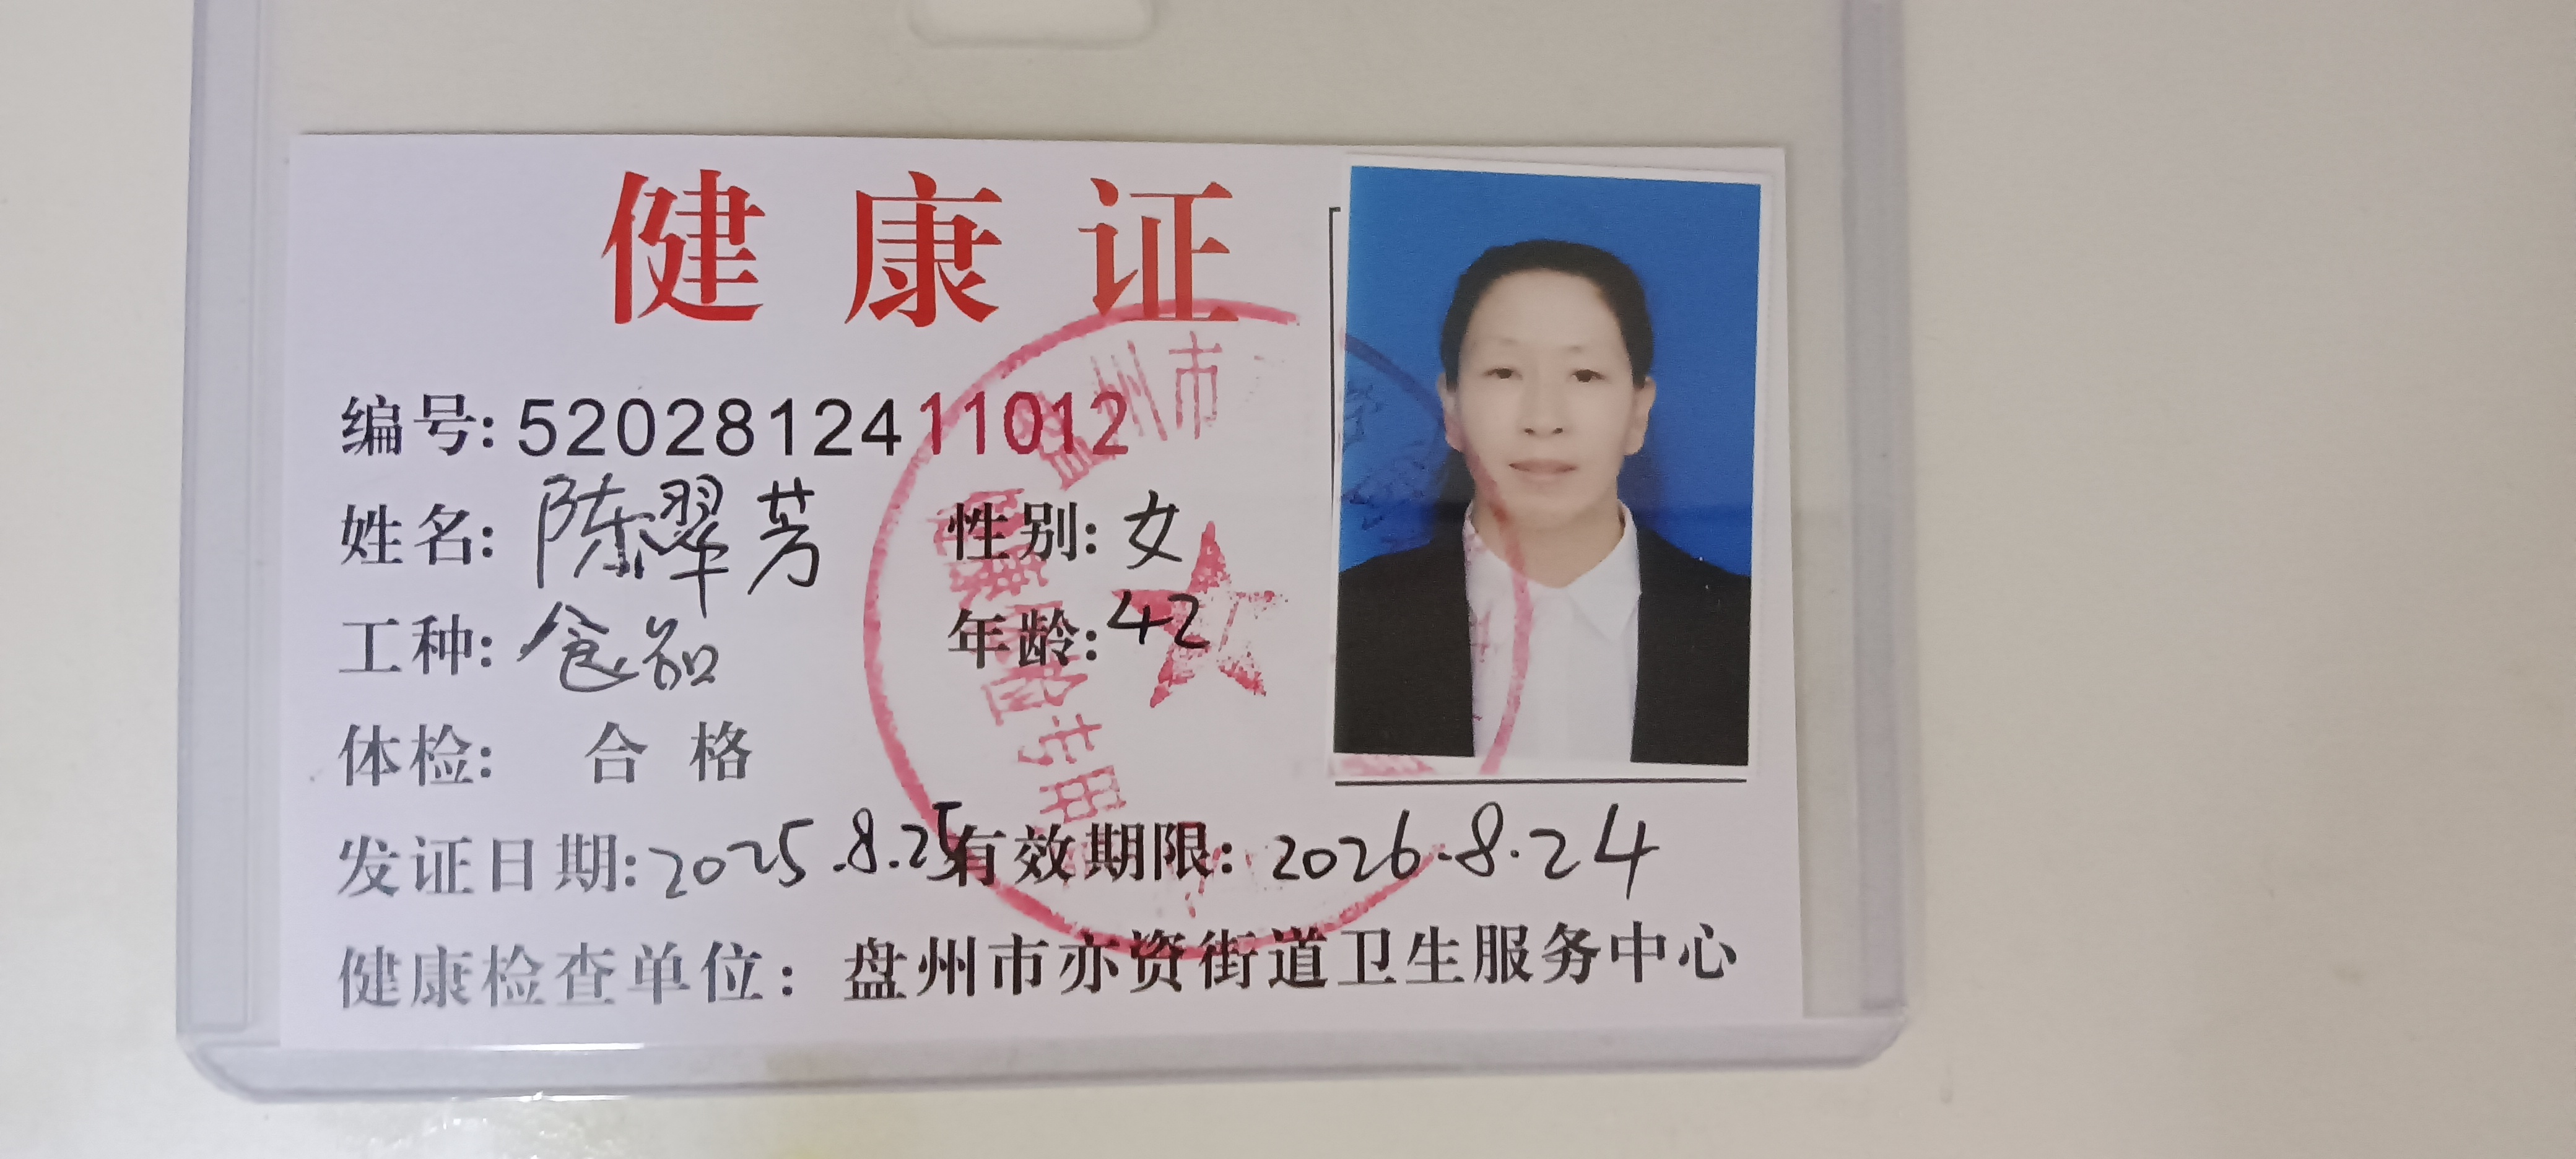 健康证
编号: 520281241 1012
姓名: 陈翠芳 性别: 女
工种: 食品 年龄: 42
体检: 合格
发证日期: 2025.8.25 有效期限: 2026.8.24
健康检查单位: 盘州市亦资街道卫生服务中心
州市
专用